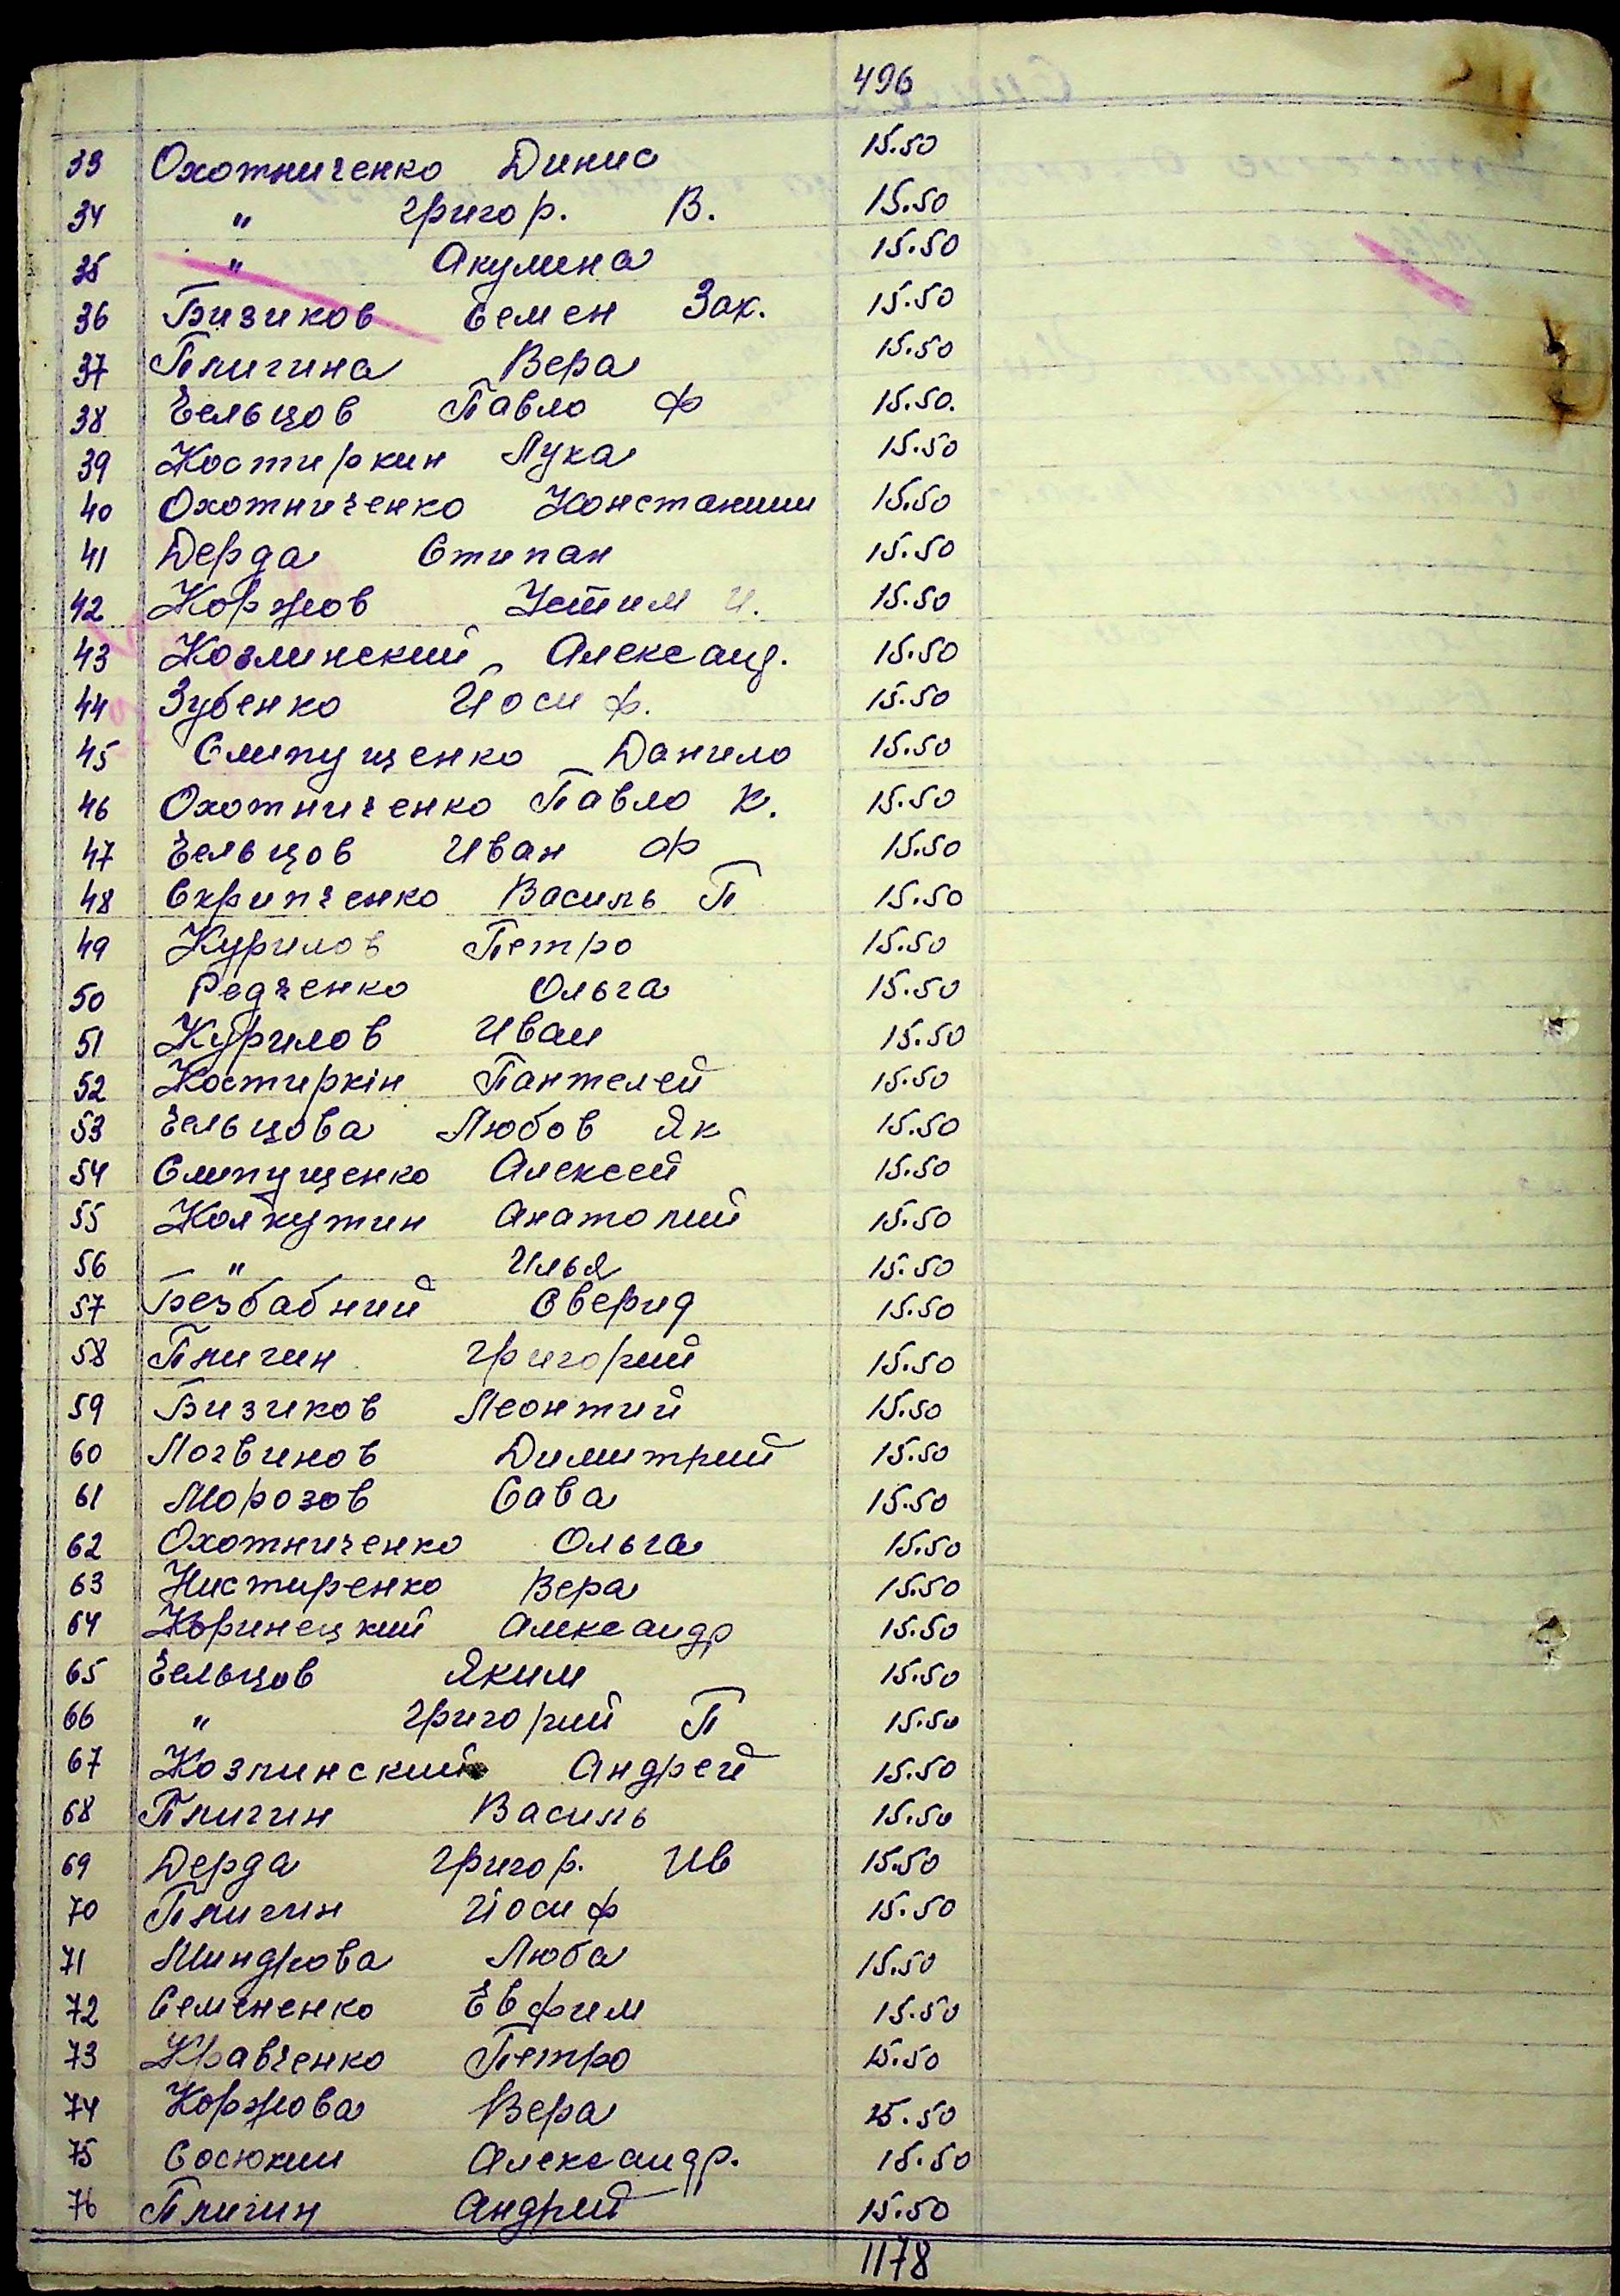 496
33 Охотниченко Динис 15.50
34 " Григор. В. 15.50
35 " Акулина 15.50
36 Бизиков Семен Зах. 15.50
37 Плигина Вера 15.50
38 Ельцов Павло Ф 15.50.
39 Костиркин Лука 15.50
40 Охотниченко Констанши 15.50
41 Дерда Стипан 15.50
42 Коржов Устим И. 15.50
43 Козлинский Александ. 15.50
44 Зубенко Йосиф. 15.50
45 Слипущенко Данило 15.50
46 Охотниченко Павло К. 15.50
47 Ельцов Иван Ф 15.50
48 Скрипченко Василь П 15.50
49 Курилов Петро 15.50
50 Редченко Ольга 15.50
51 Курилов Иван 15.50
52 Костиркін Пантелей 15.50
53 Ельцова Любов Як 15.50
54 Слипущенко Алексей 15.50
55 Колкутин Анатолий 15.50
56 " Илья 15.50
57 Безбабний Сверид 15.50
58 Плигин Григорий 15.50
59 Бизиков Леонтий 15.50
60 Логвинов Димитрий 15.50
61 Морозов Сава 15.50
62 Охотниченко Ольга 15.50
63 Нистиренко Вера 15.50
64 Коринецкий Александр 15.50
65 Ельцов Яким 15.50
66 " Григорий П 15.50
67 Козлинский Андрей 15.50
68 Плигин Василь 15.50
69 Дерда Григор. Ив 15.50
70 Плигин Йосиф 15.50
71 Миндрова Люба 15.50
72 Семененко Евфим 15.50
73 Кравченко Петро 15.50
74 Коржова Вера 15.50
75 Сосюкин Александр. 15.50
76 Плигин Андрий 15.50
1178